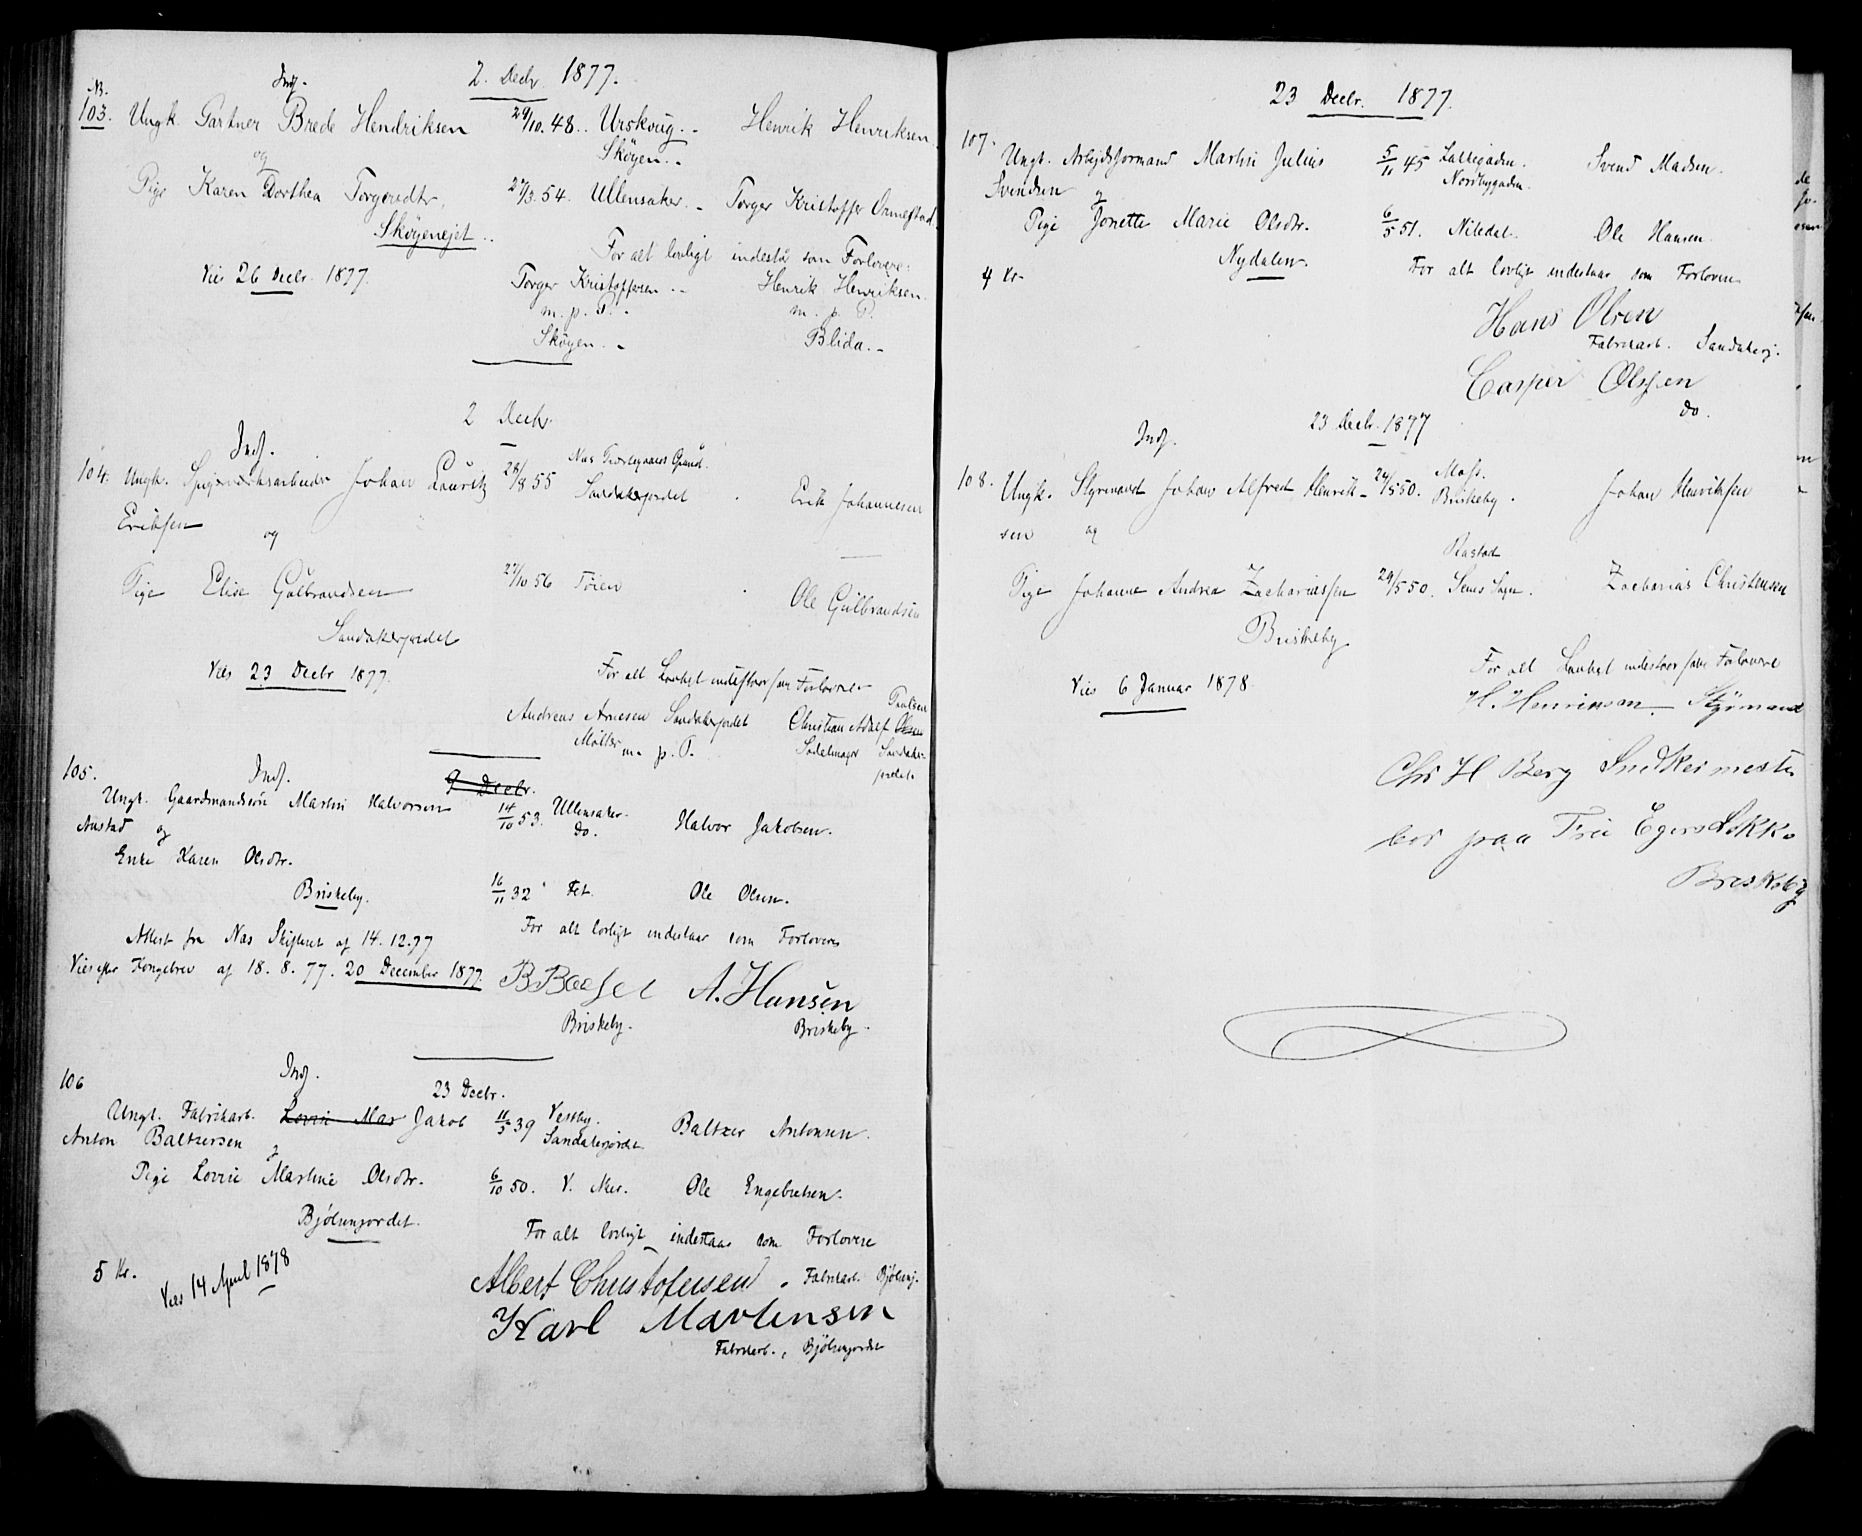 2. Decbr 1877.
No. Indf.
103. Ungk. Gartner Brede Hendriksen 29/10.48.. Urskoug.. Henrik Henriksen
og Skøyen..
Pige Karen Dorthea Torgersdtr, 27/3.54. Ullensaker.. Torger Kristoffer
Skøyenejet..
For alt lovligt indestå som Forlovere:
Viet 26 Decbr. 1877. Torger Kristoffersen.. Henrik Henriksen.
m. p. P.. m. p. P.
Skøyen.. Blida..
2 Decbr.
Indf.
104. Ungk. Johan Lauritz 28/8 55 Sandakerjordet. Erik Johannesen
Eriksen og
Pige Elise Gulbrandsen 27/10 56 Tøien Ole Gulbrandsen
Sandakerjordet
Viet 23 Decbr 1877. For alt Lovligt indestaar som Forlovere
Andreas Arnesen Sandakerjordet Christian Adolf Olsen Paulsen
Møller m. p. P. Sadelmager Sandaker-
jordet.
105. Indf. 9 Decbr.
Ungk. Gaardmandssøn Martin Halvorsen 14/10 53. Ullensaker. Halvor Jakobsen.
Austad og do.
Enke Karen Olsdtr. 16/11 32 Fet. Ole Olsen.
Briskeby.
For alt lovligt indestaar som Forlovere
Attest fra Nas Skifteret af 14.12.77
Viet efter Kongebrev af 18. 8. 77. 20 December 1877. A. Hansen
Briskeby. Briskeby.
106 Indf. 23 Decbr.
Ungk. Fabrikarb. Lovise Mar Jakob 11/5 39 Vestby. Baltzer Antonsen.
Anton Baltzersen og Sandakerjordet
Pige Lovise Martine Olsdtr. 6/10 50. V. Aker. Ole Engebretsen.
Bjølsenjordet.
For alt lovligt indestaar som Forlovere
5 Kr. Viet 14 April 1878
Albert Christofersen. Fabrikarb. Bjølsenj.
Karl Martensen
Fabrikarb., Bjølsenjordet
23 Decbr. 1877.
107. Ungk. Arbejdsformand Martin Julius 5/11 45 Lakkegaden. Svend Madsen.
Svendsen og Nordbygaden.
Pige Jonette Marie Olsdtr. 6/5 51. Nitedal. Ole Hansen.
Nydalen.
4 Kr. For alt lovligt indestaar som Forlovere
Hans Olsen
Fabrikarb. Sandakerj.
Casper Olssen
do.
23 Decbr. 1877
Indf.
108. Ungk. Styrmand Johan Alfred Henrik- 24/5 50. Moss. Johan Henriksen
sen og Briskeby.
Pige Johanne Andrea Zachariassen 29/5 50. Sems Sogn. Zacharias Christensen
Briskeby
Viet 6 Januar 1878. For alt Lovligt indestaar som Forlovere
H. Henriksen. Styrmand
Chr H Berg Snedkermester
bor paa Fru Egers Løkke
Briskeby